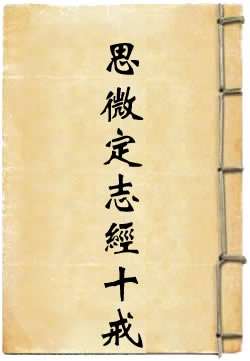 思微定志經十戒